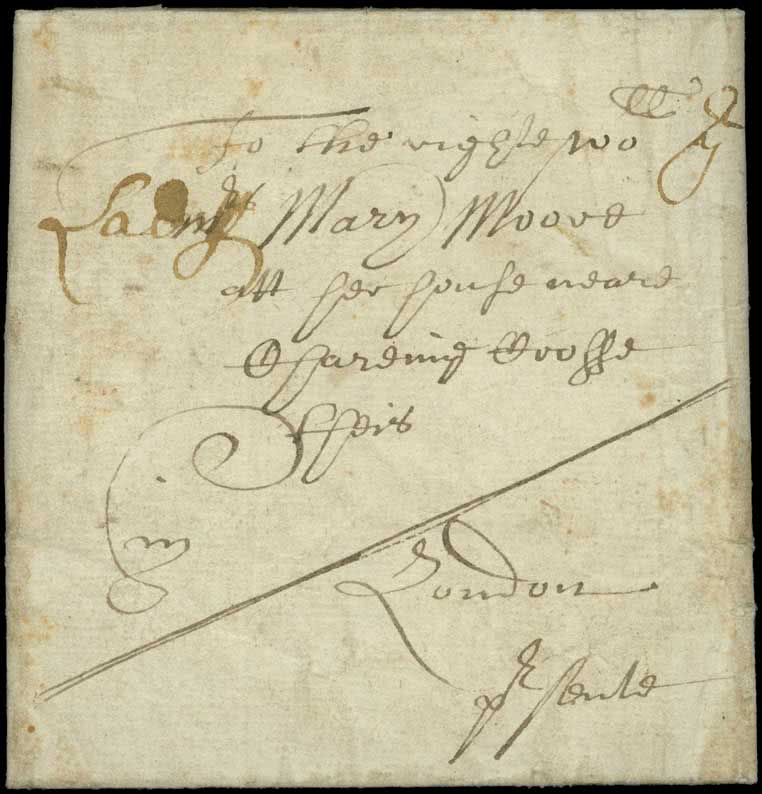 To the righte wo
Lady Mary Moore
att her house neare
Chareing Crosse
theis
in
London
prsente